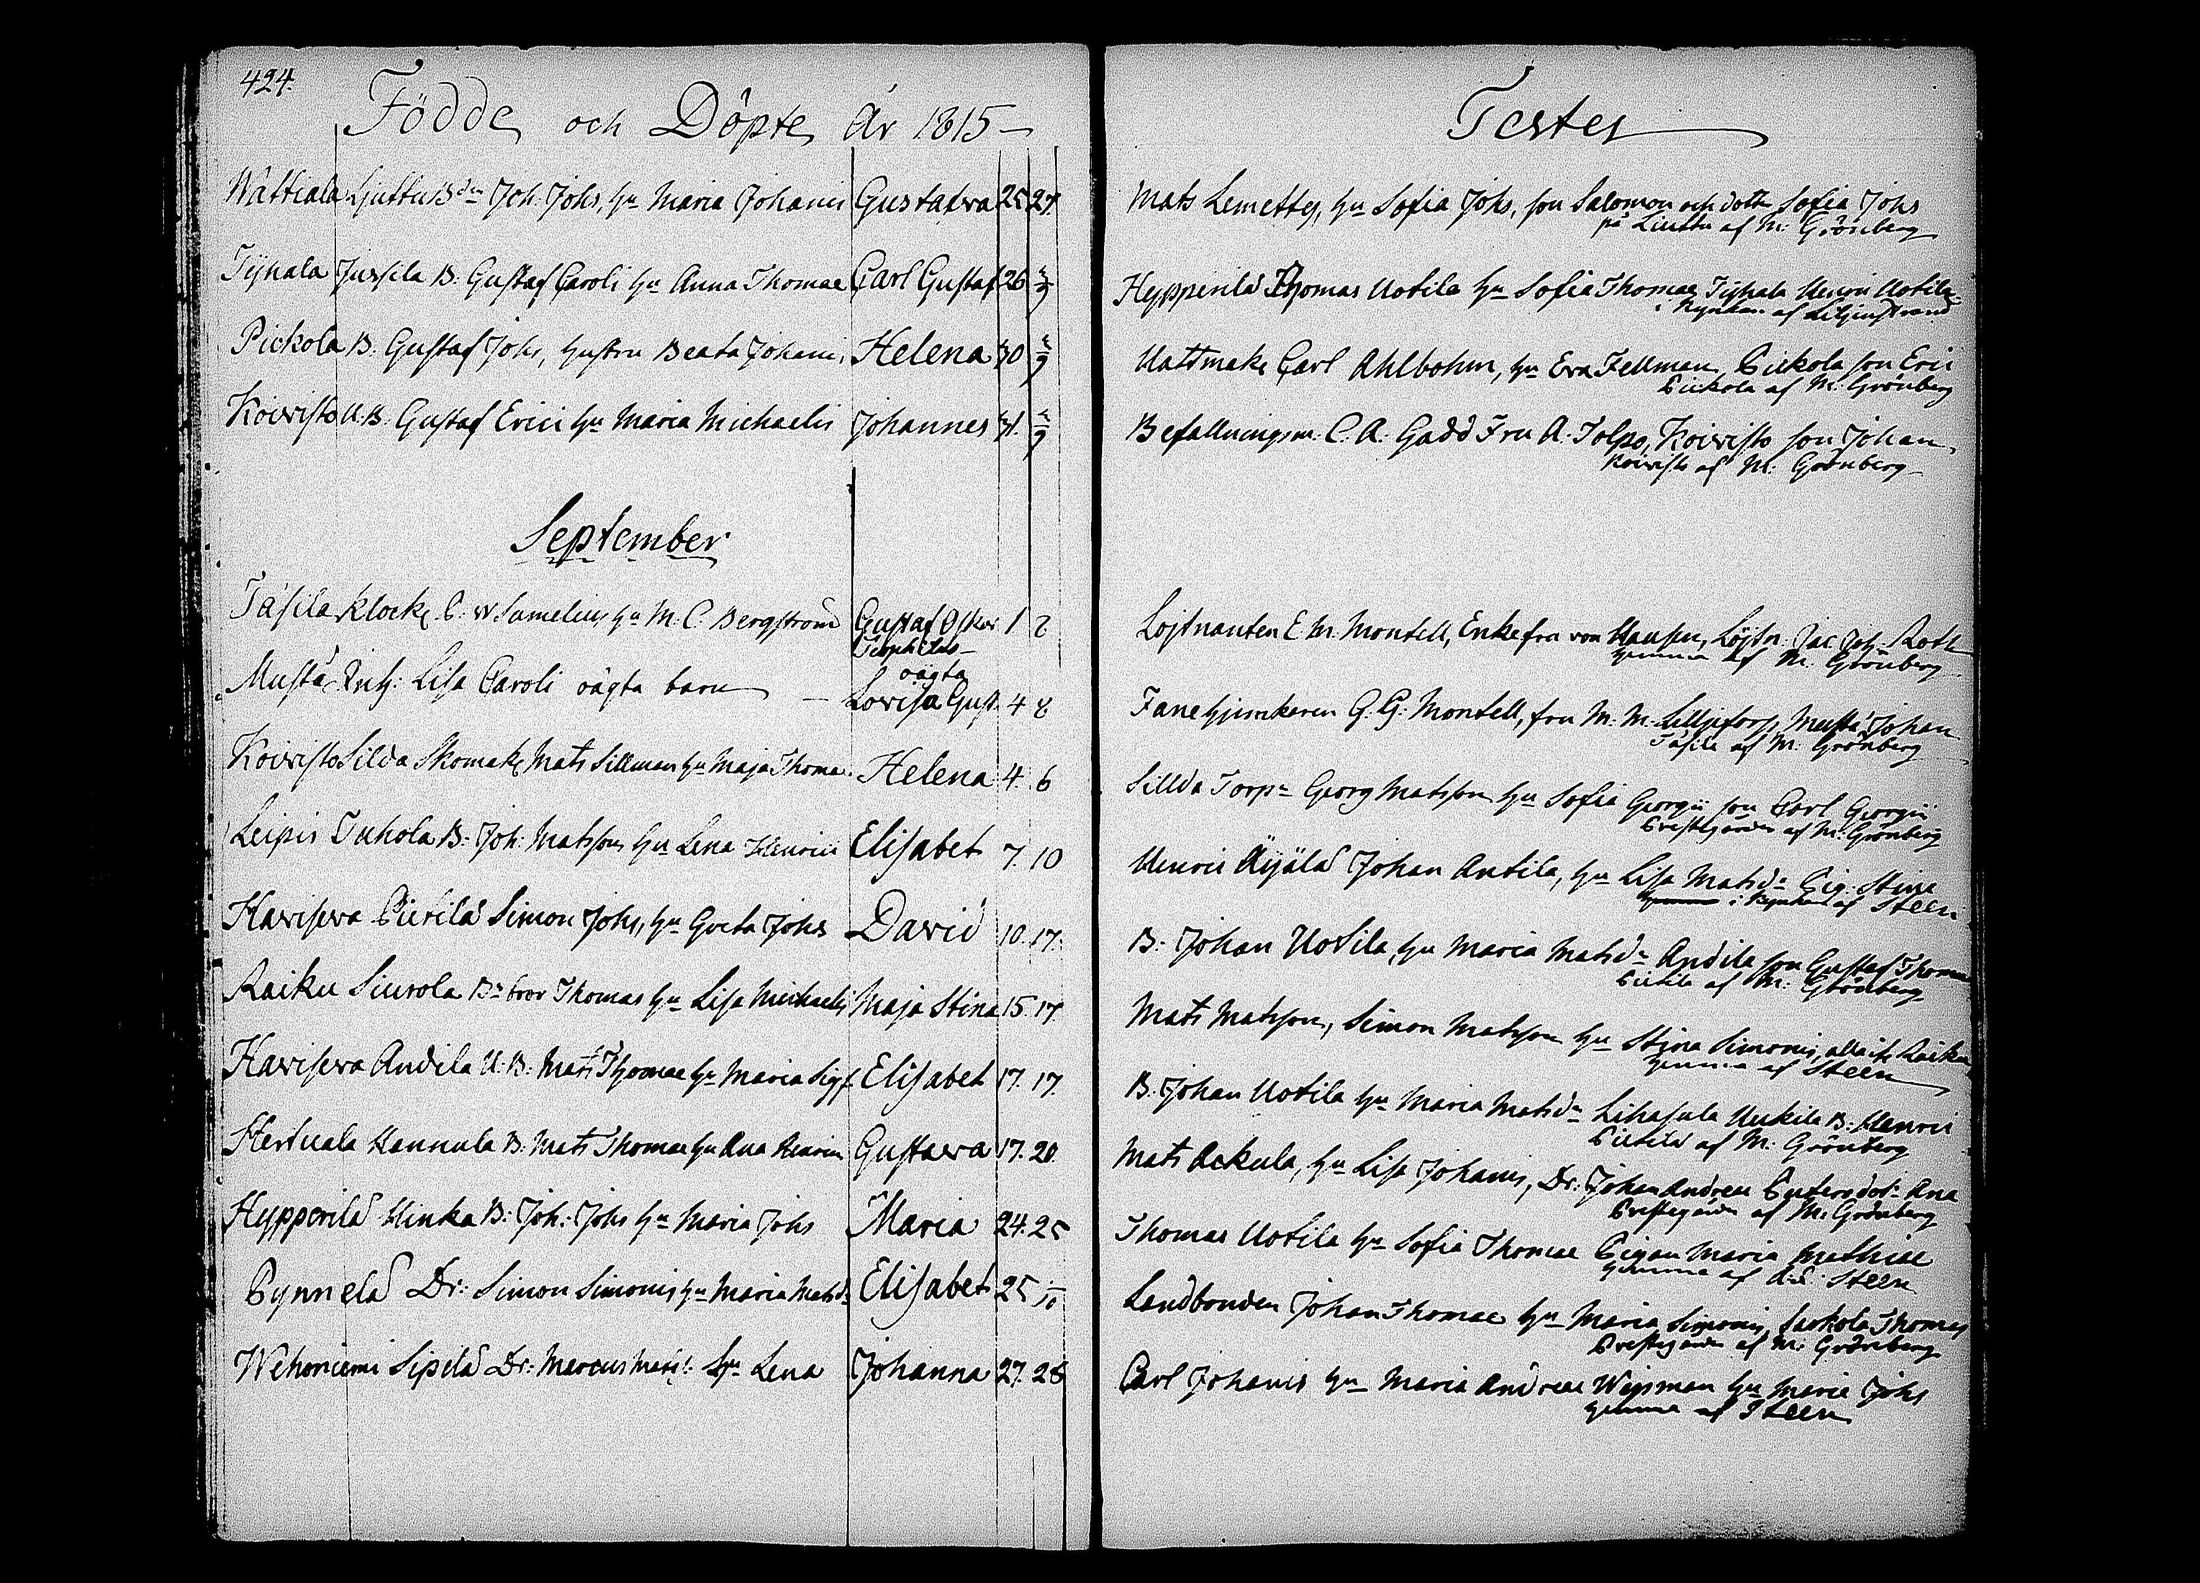 424.
Födde och Döpte År 1815
Wättiala Joh: Johs, Hu Maria Johanis Gustafva 25 27
Tyhala Jussila B. Gustaf Caroli Hu Anna Thomae Carl Gustaf 26 2/9
Pickola B. Gustaf Johs, Hustru Beata Johanis Helena 30 2/9
Koivisto U.B. Gustaf Erici Hu Maria Michaelis Johannes 31. 2/9
September
Täfila Klock. C. W Sumelius, Hu M. C. Bergström Gustaf Oskar 1 2
Teophilus
Musta Inh: Lisa Caroli oägta barn oägta
Lovisa Gust. 4 8
Koivisto Silda Skomak. Mats Sillman Hu Maja Thomae Helena 4. 6
Leipis Tukola B. Joh: Matsson, Hu Lena Henrici Elisabet 7. 10
Havisera Pietilä Simon Johs, Hu Greta Johs David 10. 17.
Raiku Siurola Bn bror Thomas Hu Lisa Michaelis Maja Stina 15. 17.
Havisera Andila U.B. Mats Thomae Hu Maria Sigf. Elisabet 17. 17.
Hertuala Hannula B. Mats Thomae Hu Ana Henrici Gustava 17. 20.
Hypperilä Hinka B. Joh: Johs Hu Maria Johs Maria 24. 25
Pynnelä Dr: Simon Simonis, Hu Maria Matsdr Elisabet 25 1/10
Wehoniemi Sipilä Dr: Marcus Mats: Hu Lena Johanna 27. 28
Testes
Mats Lemettÿ, Hu Sofia Johs, son Salomon och dottr Sofia Johs
på Liuttu af M. Grönberg
Hypperilä Thomas Uotila Hu Sofia Thomae Tyhala Henric Uotila
i Kyrkan af Liljenstrand
Hattmak. Carl Ahlbohm, Hu Eva Fellman, Pickola son Eric
Pickola af M. Grönberg
Befallningsm. C. A. Gadd Fru A. Tolpo, Koivisto son Johan
Koivisto af M. Grönberg
Löjtnanten E M. Montell, Enkefru von Hausen, Löjtn. Jac. Joh. Roth
hemma af M. Grönberg
Fanehjunkeren G. G. Montell, fru M. M. Musta Johan
Täfila af M. Grönberg
Sillda Torpn Georg Matsson Hu Sofia Georgii son Carl Georgii
Prestgården af M. Grönberg
Henric Äijälä Johan Antila, Hu Lisa Matsdr Pig. Stina
i Kyrkan af Steen
B. Johan Uotila, Hu Maria Matsdr Andila son Gustaf Thomae
Pietilä af M. Grönberg
Mats Matsson, Simon Matsson Hu Stina Simonis, alla ifr Raiku
hemma af Steen
B. Johan Uotila Hu Maria Matsdr Lihasula Uckila B. Henric
Pietilä af M. Grönberg
Mats Ackula, Hu Lisa Johanis, Dr: Johan Andreae Ana
Prestegården af M. Grönberg
Thomas Uotila Hu Sofia Thomae Pigan Maria Mathiae
hemma af Steen
Landbonden Johan Thomae Hu Maria Simonis, Thomas
Prestegården af M. Grönberg
Carl Johanis Hu Maria Andreae Hu Maria Johs
hemma af Steen